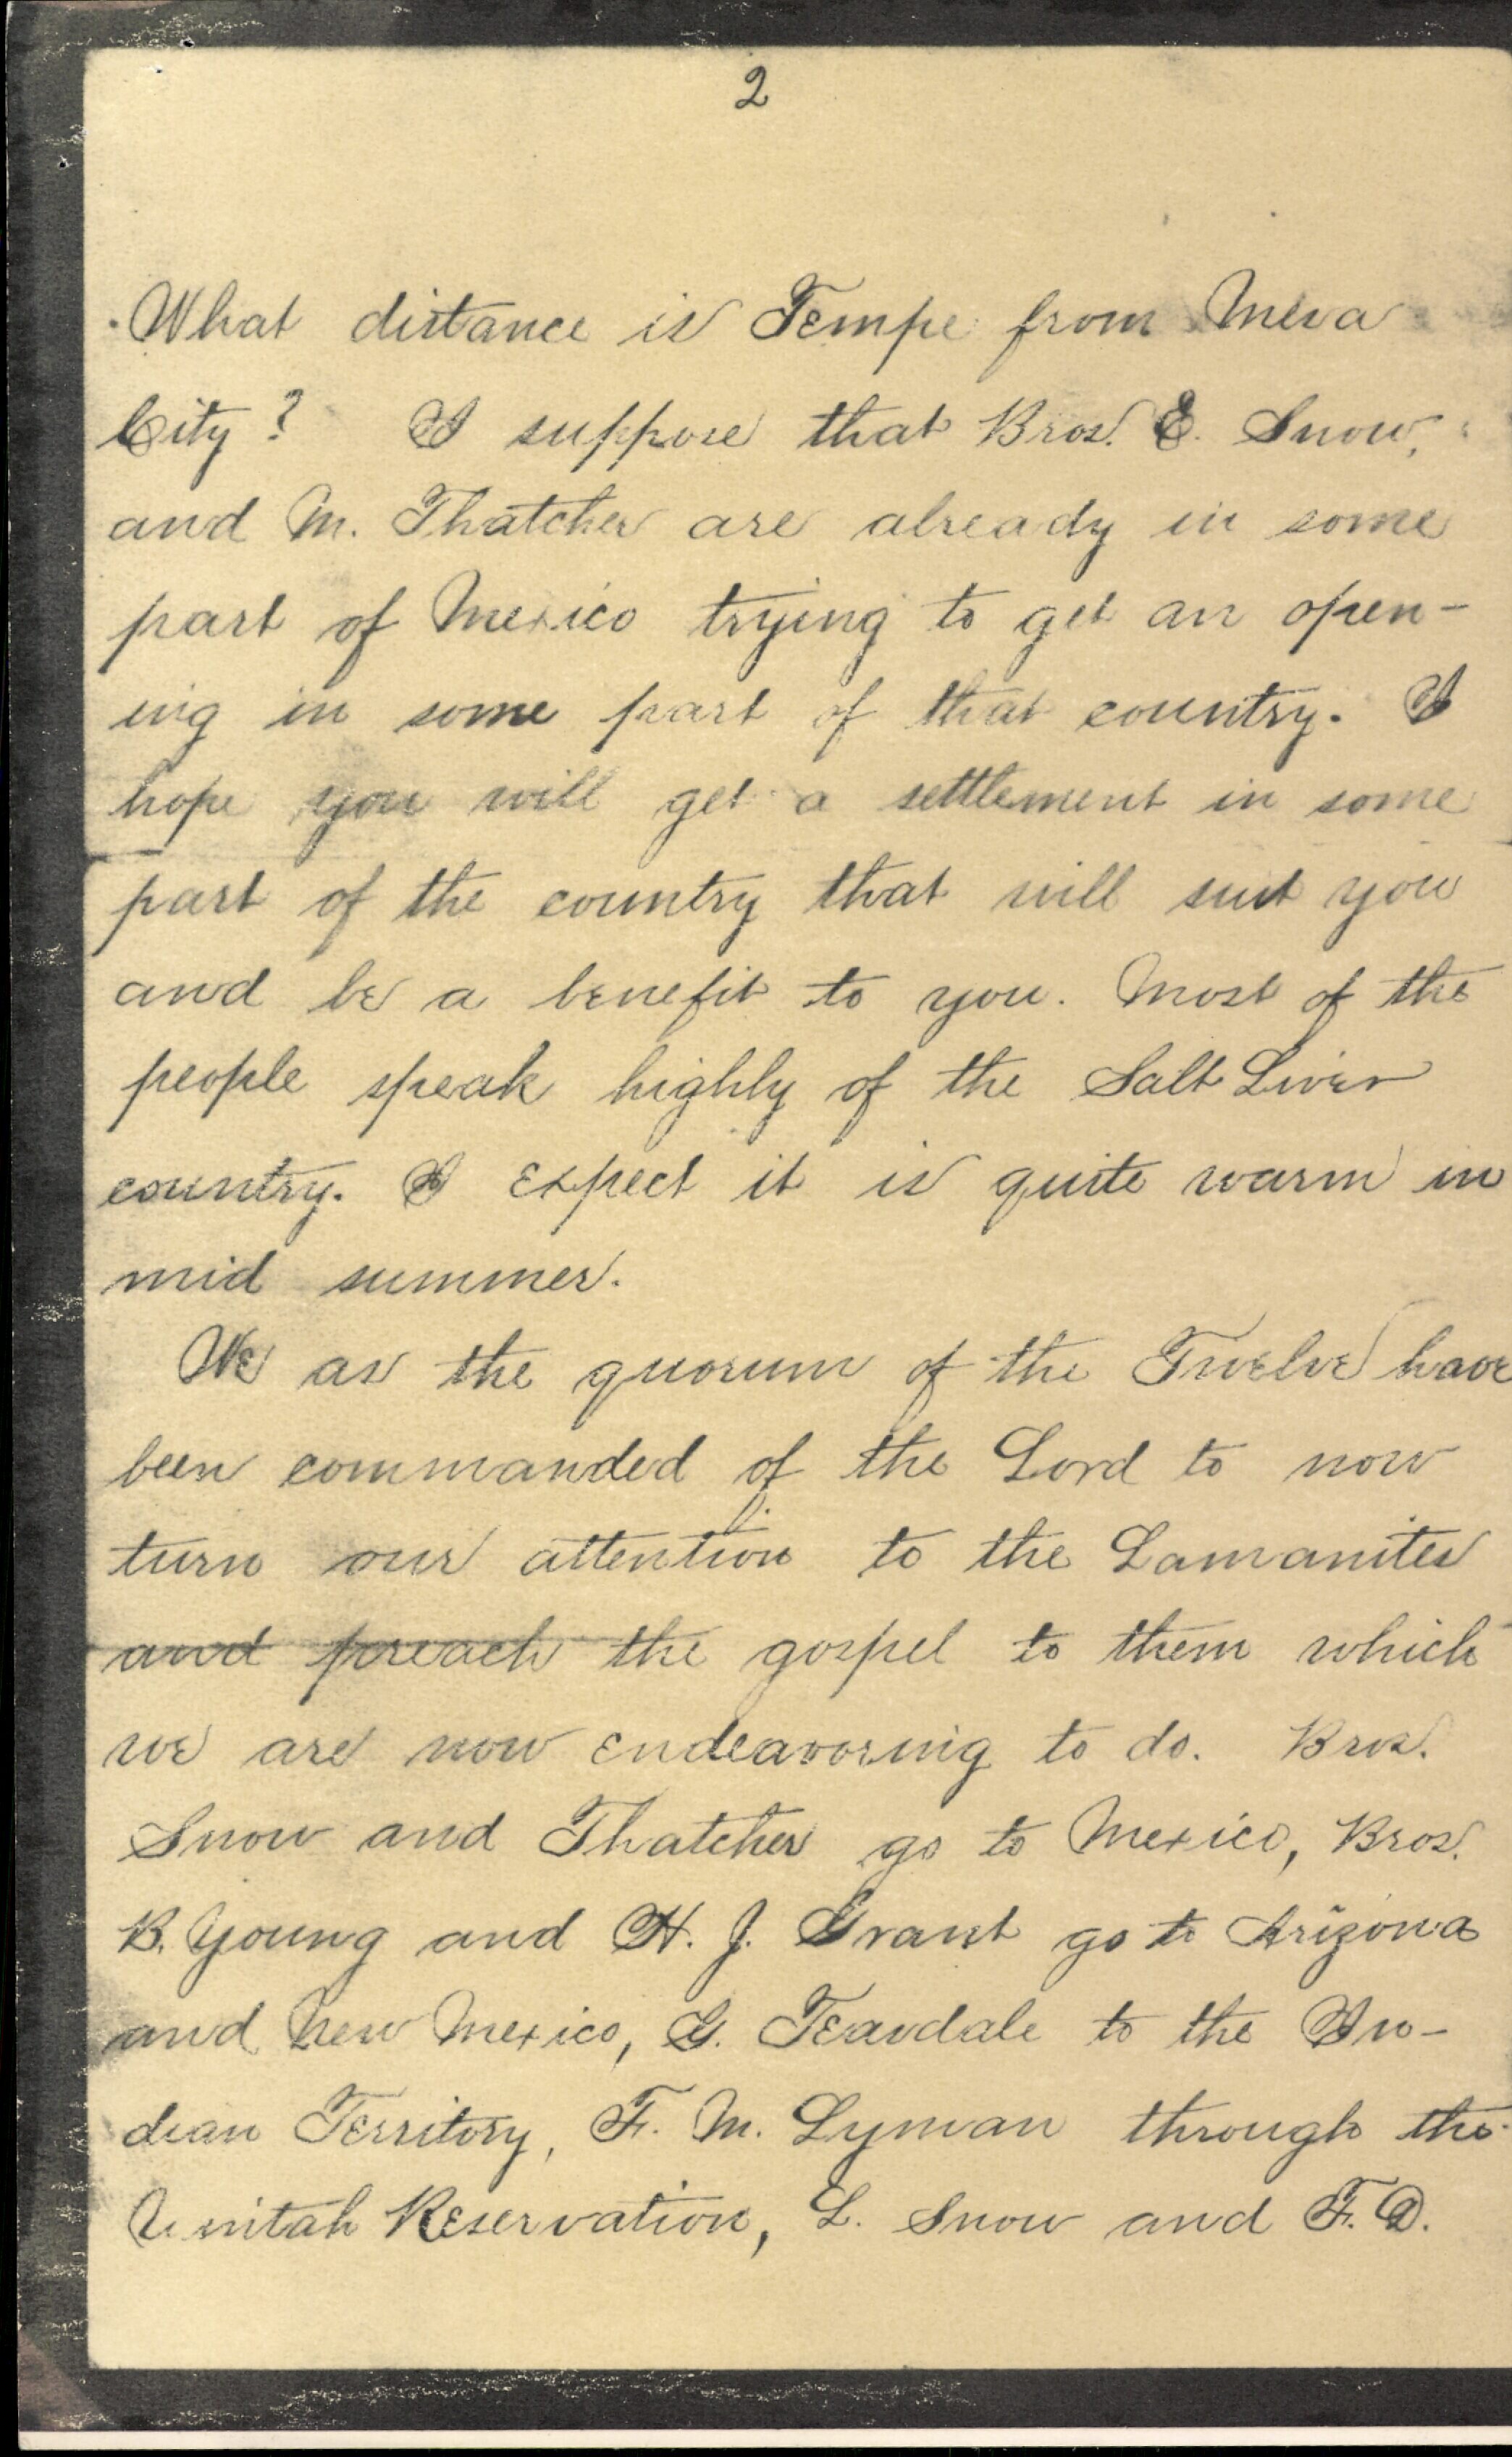 2
What distance is Tempe from Mesa
City? I suppose that Bros. E. Snow,
and M. Thatcher are already in some
part of Mexico trying to get an open-
ing in some part of that country. I
hope you will get a settlement in some
part of the country that will suit you
and be a benefit to you. Most of the
people speak highly of the Salt Liver
country. I expect it is quite warm in
mid summer.
We as the quorum of the Twelve have
been commanded of the Lord to now
turn our attention to the Lamanites
and preach the gospel to them which
we are now endeavoring to do. Bros.
Snow and Thatcher go to Mexico, Bros.
B. Young and H. J. Grant go to Arizona
and New Mexico, G. Teasdale to the In-
dian Territory, F. M. Lyman through the
Unitah Reservation, L. Snow and F. D.